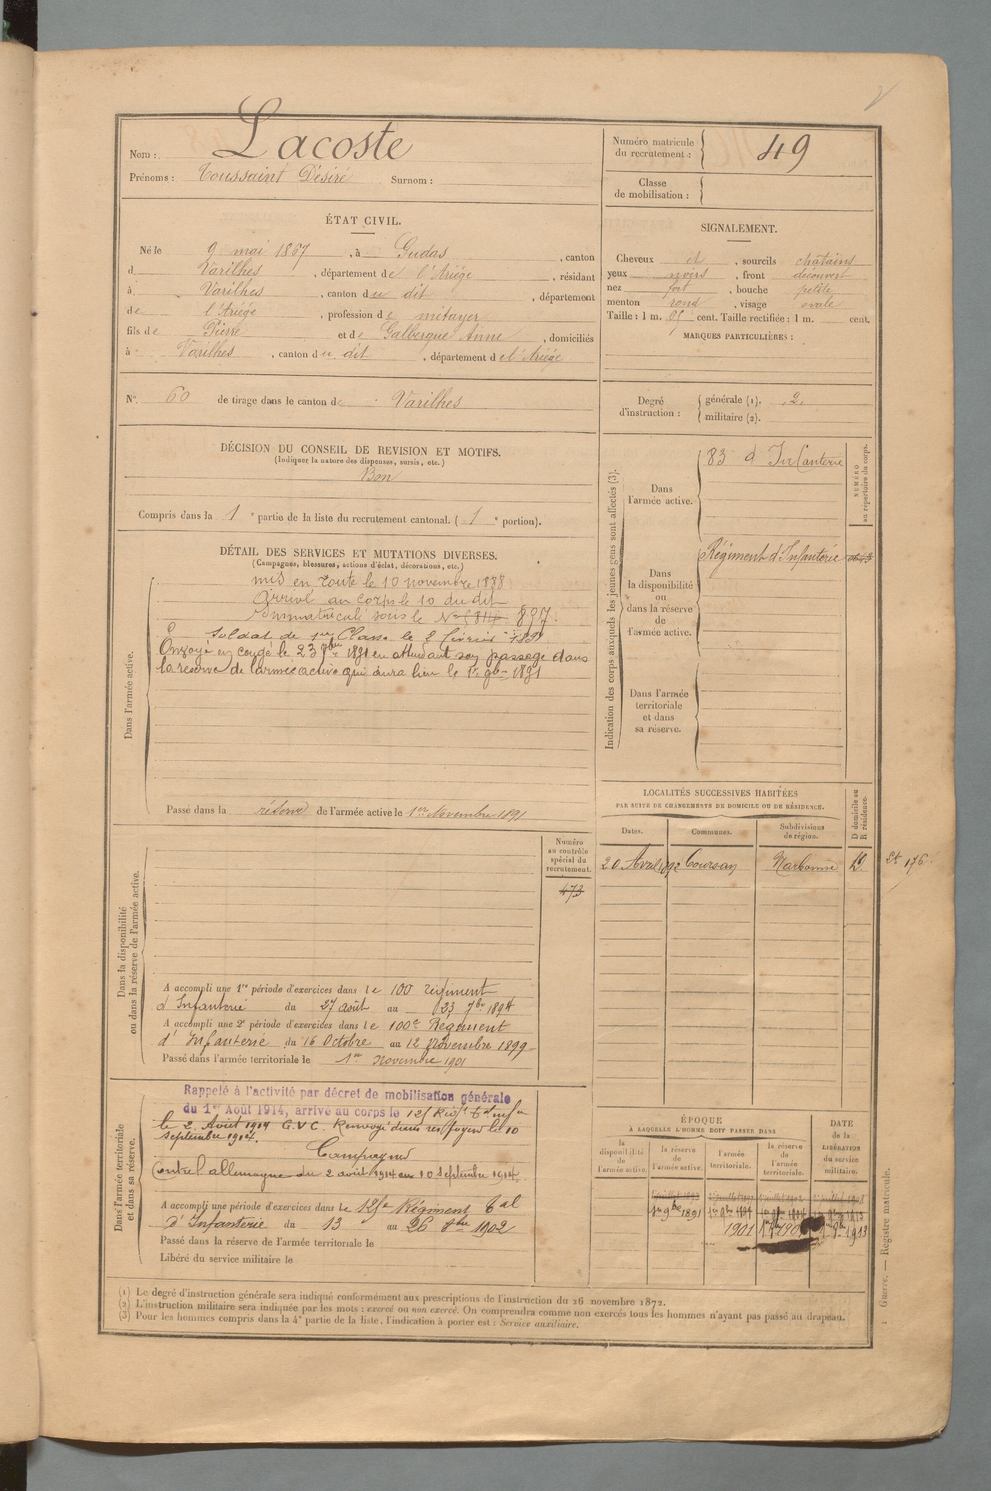 Nom : Lacoste
Prénoms : Toussaint Désiré Surnom :
Numéro matricule du recrutement : 49
Classe de mobilisation :
ÉTAT CIVIL.
Né le 9 mai 1867, à Gudas, canton
d Varilhes, département de l'Ariége, résidant
à Varilhes, canton du dit, département
de l'Ariége, profession de métayer
fils de Pierre et de Galbergue Anne, domiciliés
à Varilhes, canton du dit, département de l'Ariége
SIGNALEMENT.
Cheveux et, sourcils chatains
yeux noirs, front découvert
nez fort, bouche petite
menton rond, visage ovale
Taille : 1 m. cent. Taille rectifiée : 1 m. cent.
MARQUES PARTICULIÈRES :
N° 60 de tirage dans le canton de Varilhes
Degré d'instruction : générale (1). 2.
militaire (2).
DÉCISION DU CONSEIL DE REVISION ET MOTIFS.
(Indiquer la nature des dispenses, sursis, etc.)
Bon
Compris dans la 1e partie de la liste du recrutement cantonal. (1e portion).
DÉTAIL DES SERVICES ET MUTATIONS DIVERSES.
(Campagnes, blessures, actions d'éclat, décorations, etc.)
Dans l'armée active.
mis en route le 10 novembre 1888
arrivé au corps le 10 du dit
Immatriculé sous le N° 897
Soldat de 1re Classe le 2 février
Envoyé en congé le 23 7bre 1891 en attendant son passage dans
la réserve de l'armée active qui aura lieu le 1er 9bre 1891
Passé dans la réserve de l'armée active le 1er Novembre 1891
Indication des corps auxquels les jeunes gens sont affectés (3).
NUMÉRO au répertoire du corps.
Dans l'armée active. 83 d'Infanterie
Dans la disponibilité ou dans la réserve de l'armée active. Régiment d'Infanterie
Dans l'armée territoriale et dans sa réserve.
LOCALITÉS SUCCESSIVES HABITÉES
PAR SUITE DE CHANGEMENTS DE DOMICILE OU DE RÉSIDENCE.
D domicile ou R résidence.
Dates. Communes. Subdivisions de région.
20 Avril 1892 Coursan Narbonne
Numéro au contrôle spécial du recrutement.
473
Dans la disponibilité ou dans la réserve de l'armée active.
A accompli une 1re période d'exercices dans le 100 régiment
d'Infanterie du 27 août au 23 7bre 1894
A accompli une 2e période d'exercices dans le 100e Régiment
d'Infanterie du 16 Octobre au 12 Novembre 1899
Passé dans l'armée territoriale le 1er Novembre 1901
Dans l'armée territoriale et dans sa réserve.
Rappelé à l'activité par décret de mobilisation générale
du 1er Août 1914, arrivé au corps le
le 2 Août 1914 G.V.C. Renvoyé dans ses foyers le 10
septembre 1914.
Campagne
Contre l'allemagne du 2 août 1914 au 10 septembre 1914.
A accompli une période d'exercices dans le Régiment tal
d'Infanterie du 13 au 26 1902
Passé dans la réserve de l'armée territoriale le
Libéré du service militaire le
ÉPOQUE
À LAQUELLE L'HOMME DOIT PASSER DANS
la disponibilité de l'armée active.
la réserve de l'armée active.
l'armée territoriale.
la réserve de l'armée territoriale.
DATE de la LIBÉRATION du service militaire.
1er 9bre 1891
1901
1913
(1) Le degré d'instruction générale sera indiqué conformément aux prescriptions de l'instruction du 26 novembre 1872.
(2) L'instruction militaire sera indiquée par les mots : exercé ou non exercé. On comprendra comme non exercés tous les hommes n'ayant pas passé au drapeau.
(3) Pour les hommes compris dans la 4e partie de la liste, l'indication à porter est : Service auxiliaire.
Guerre. — Registre matricule.